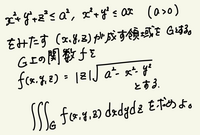 x²+y²+z² ≤ a², x²+y² ≤ ax (a>0)
をみたす (x,y,z) が成す領域を G とする。
G 上の関数 f を
f(x,y,z) = |z|√a²-x²-y²
とする.
∭_G f(x,y,z) dxdydz を求めよ。